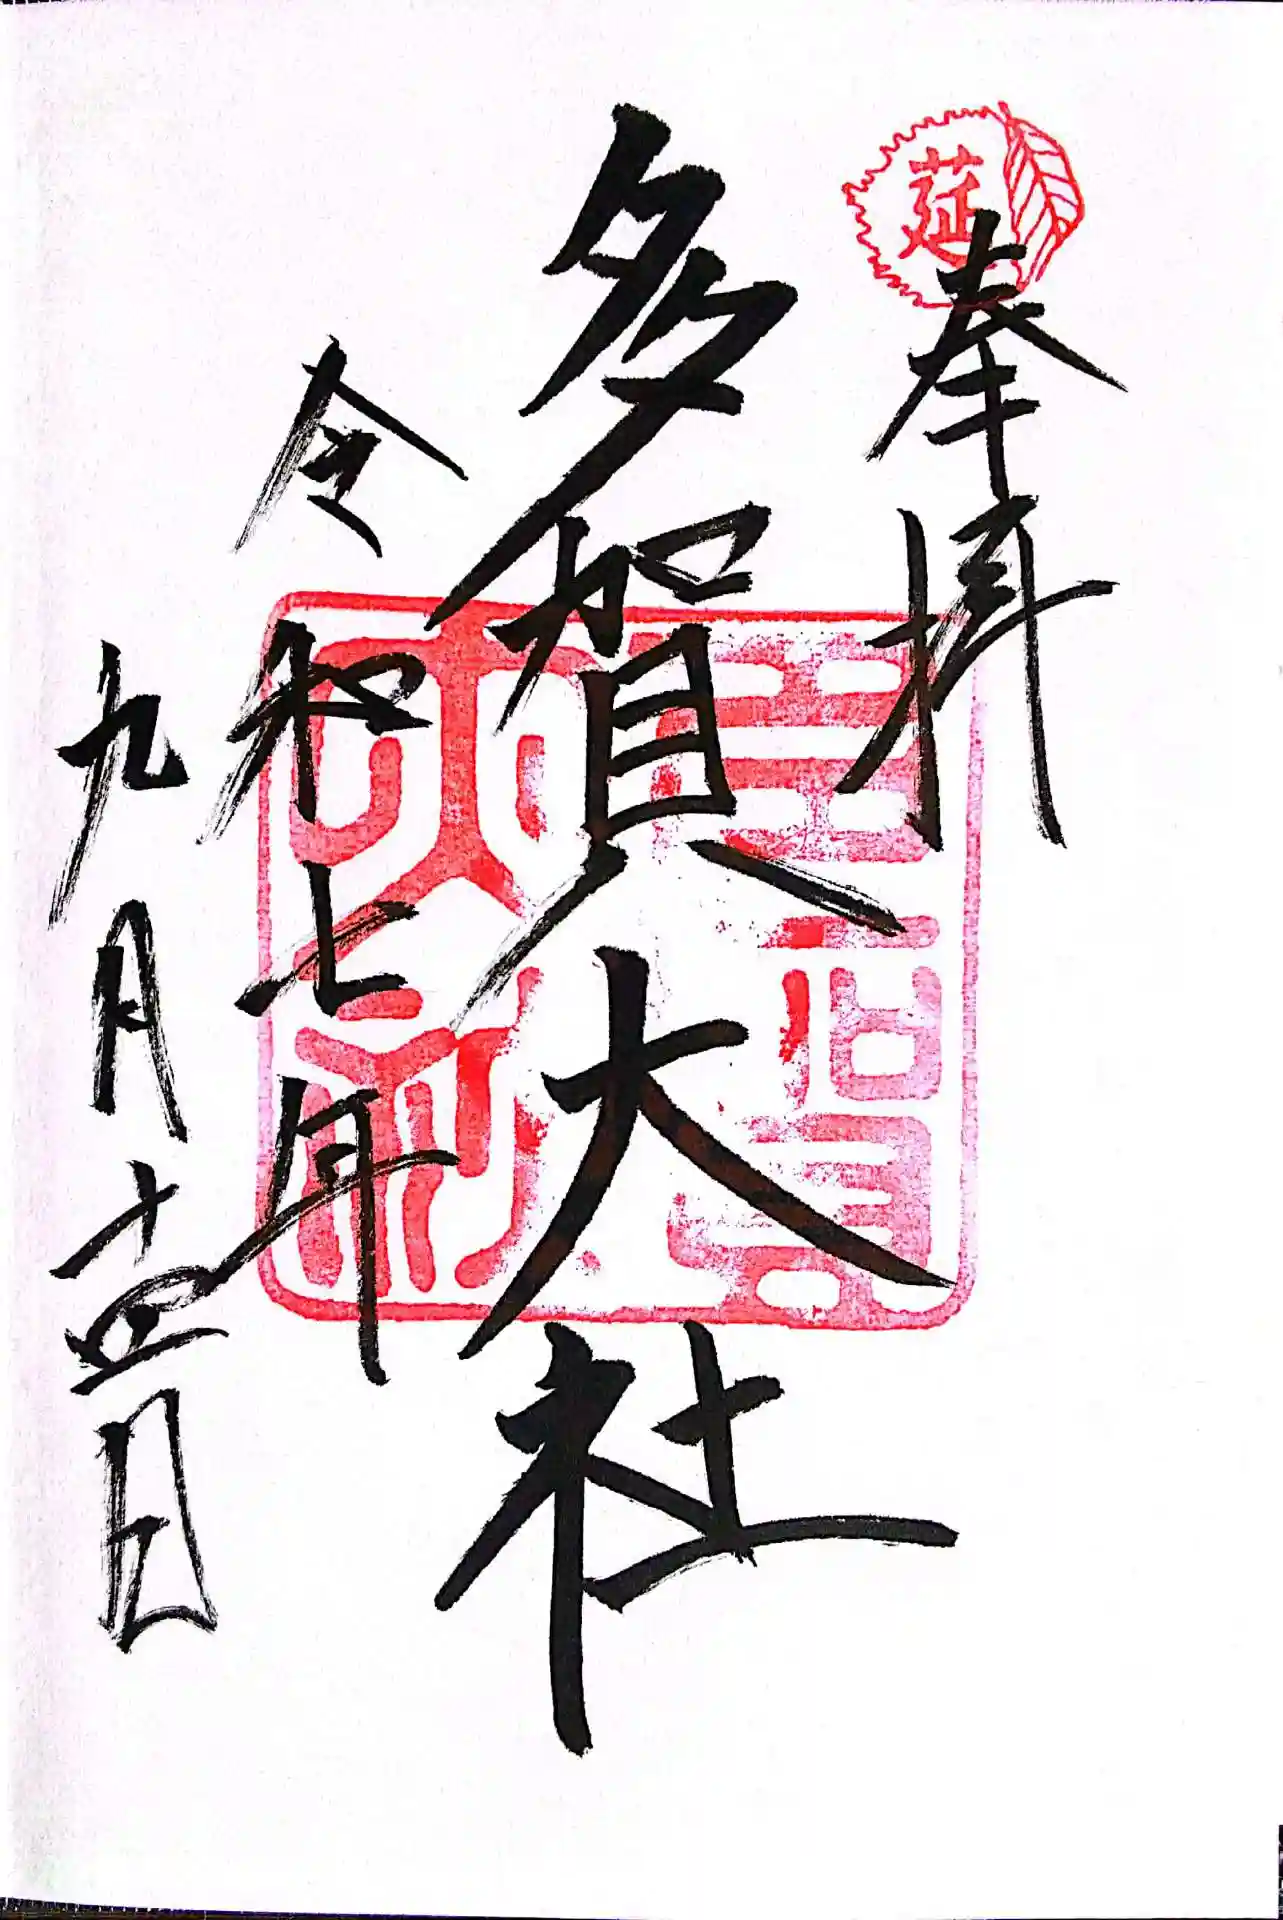 莚
奉拝
多賀大社
多賀
大社
令和七年
九月十五日